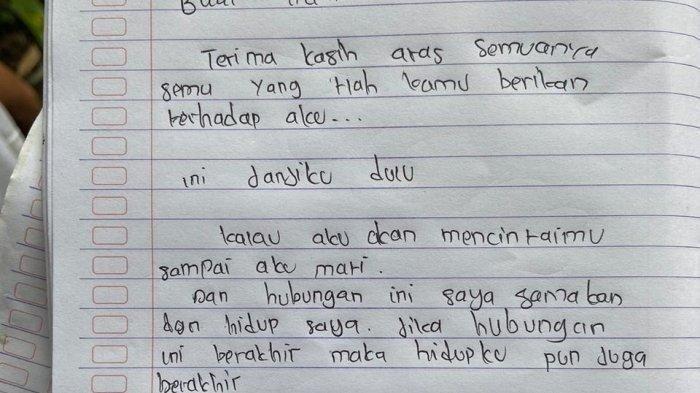 Terima kasih atas semuanya
semu yang tlah kamu berikan
terhadap aku...
ini Janjiku dulu
kalau aku akan mencintaimu
sampai aku mati.
Dan hubungan ini saya samakan
dgn hidup saya. Jika hubungan
ini berakhir maka hidupku pun Juga
berakhir